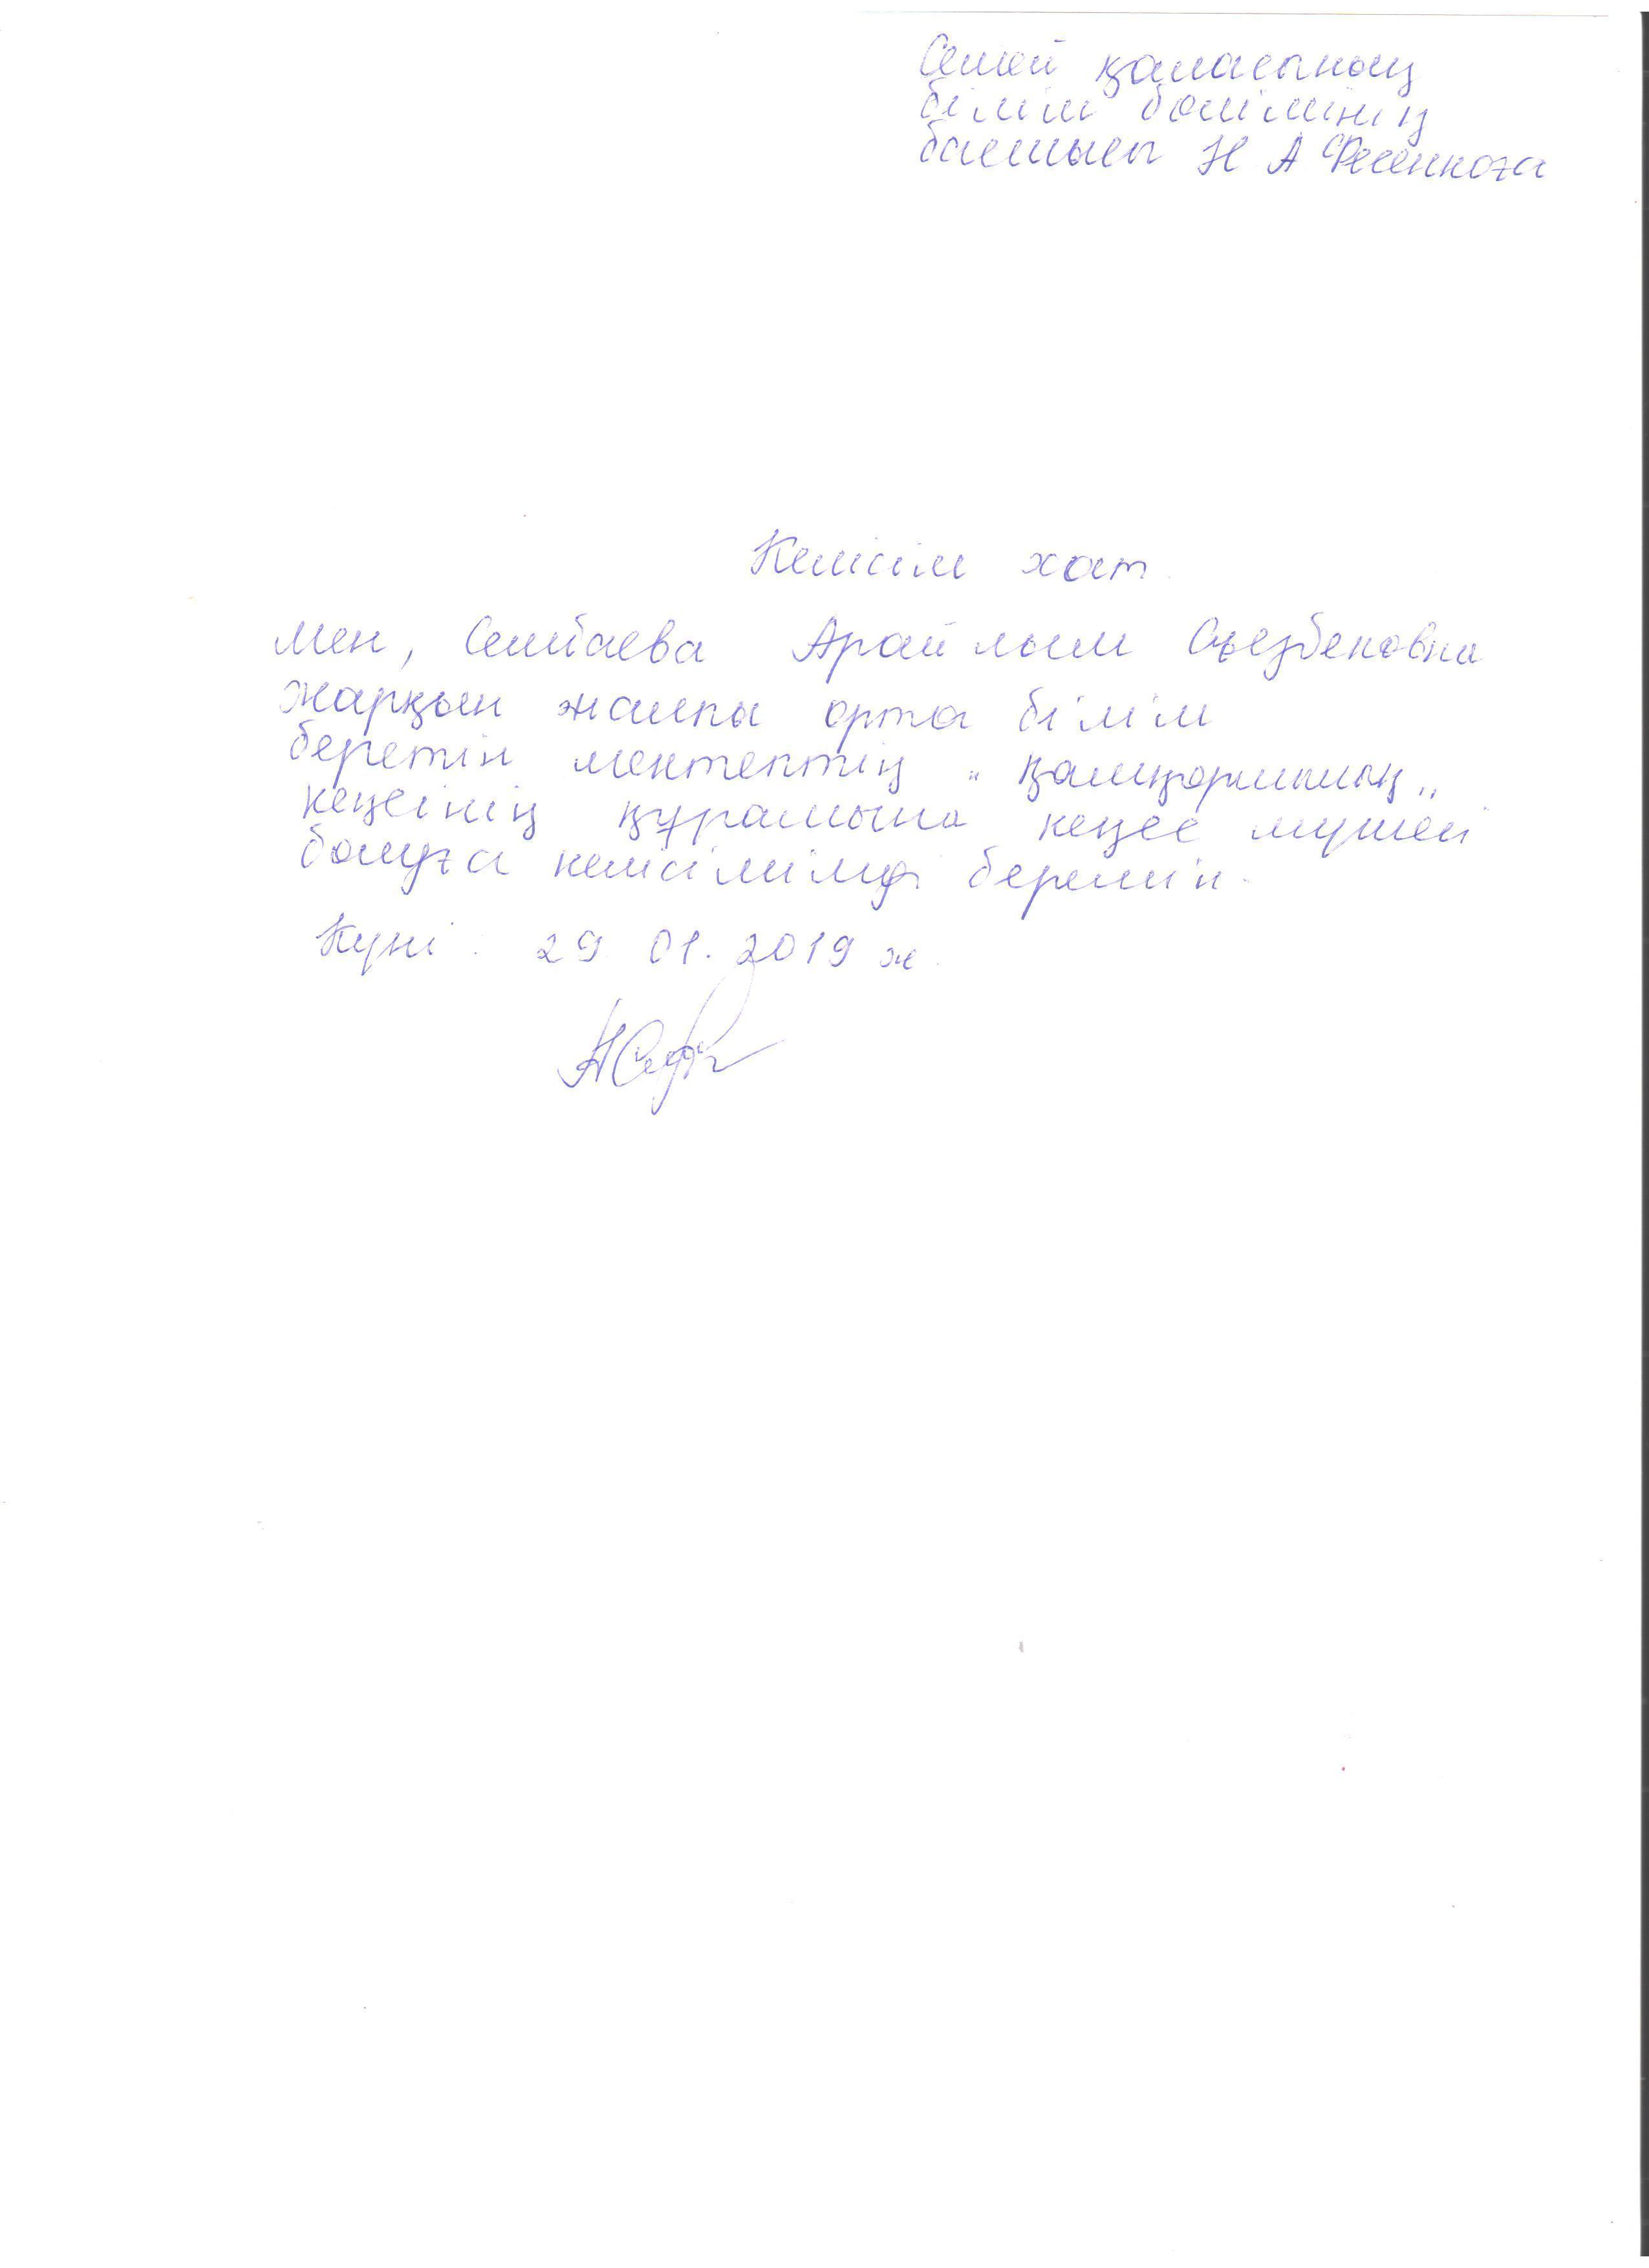 Семей қаласаның
білім бөлімінің
басшысы Н А Фесенкоға
Келісім хат.
Мен, Сембаева Арайлым Съезбековна
Жарқын жалпы орта білім
беретін мектептің „ қамқоршының „
кеңесінің құрамына кеңес мүшесі
болуға келісімімді беремін.
Күні : 29. 01. 2019 ж.